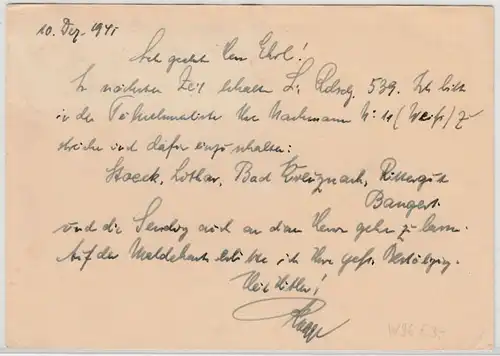 10. Dez. 1941
Sehr geehrter Herr Ehrl!
In nächster Zeit erhalten Sie Rdsch. 539. Ich bitte
in der Teilnehmerliste Ihre Nachmann Nr. 10 (Weiß) zu
streichen und dafür einzuschalten:
Stoeck, Lothar, Bad Kreuznach, Rittergut
Bangert
und die Sendung auch an den Herrn gehen zu lassen.
Auf der Meldekarte erbitte ich Ihre gefl. Bestätigung.
Heil Hitler!
W36 F. 3.-